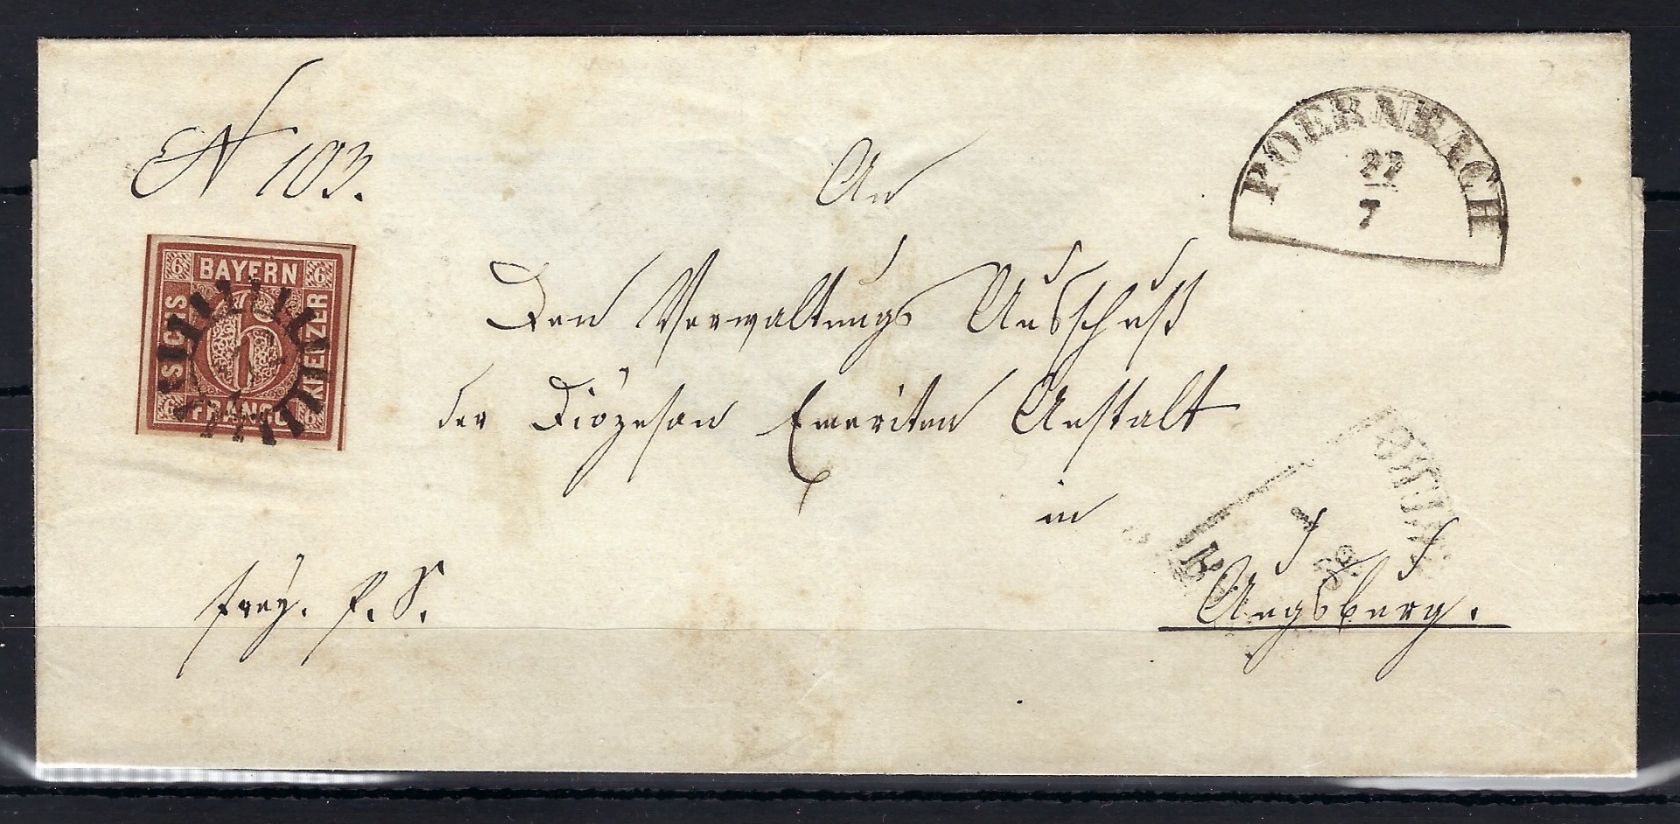 N 103.
An
Den Verwaltungs Ausschuß
der Diözesan Emeriten Anstalt
in
Augsburg.
frey. P. S.
POERNBACH
22
7
6 BAYERN 6
SECHS
KREUZER
6
6 FRANCO 6